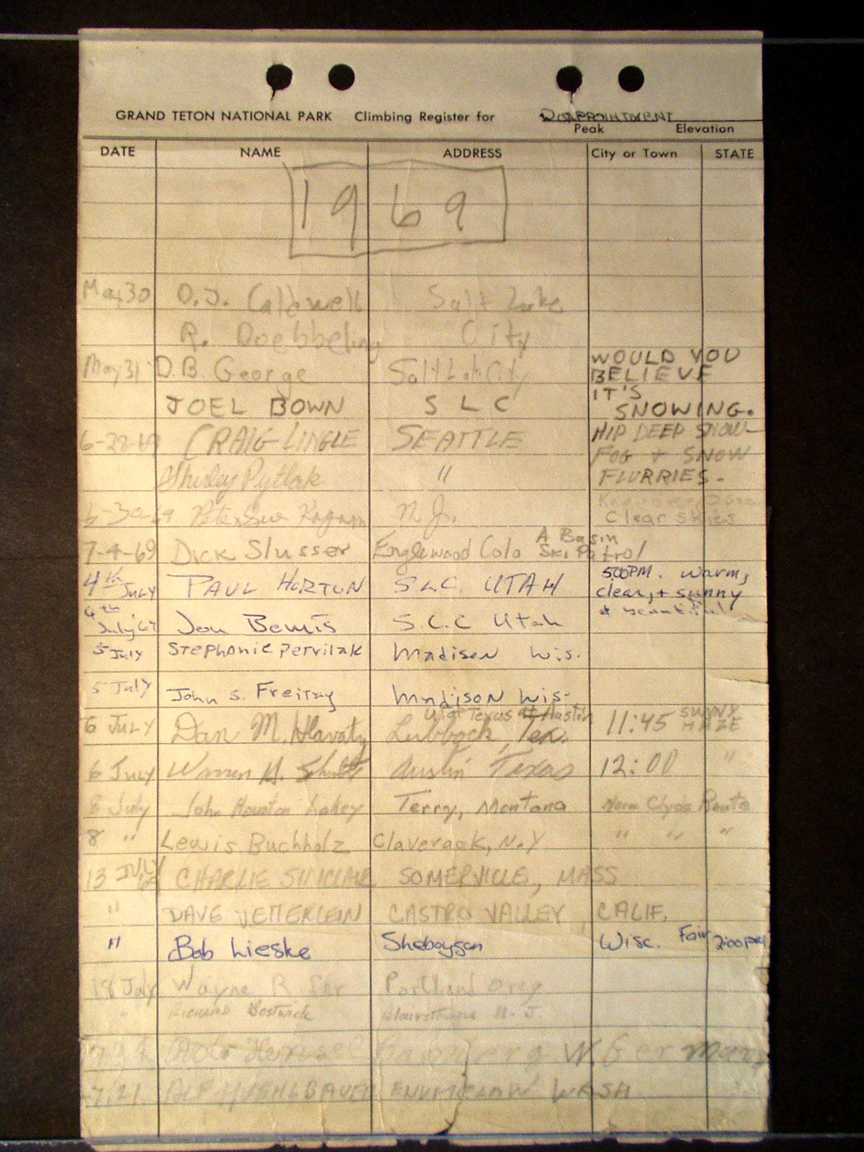 GRAND TETON NATIONAL PARK Climbing Register for DISAPPOINTMENT
Peak Elevation
DATE NAME ADDRESS City or Town STATE
1969
May 30 O.J. Caldwell Salt Lake
R. Doebbeling City
May 31 D.B. George Salt Lak City WOULD YOU BELIEVE
JOEL BOWN S L C IT'S SNOWING.
6-28-69 CRAIG LINGLE SEATTLE HIP DEEP SNOW
Shirley Pytlak " FOG + SNOW FLURRIES.
6-30-69 N.J. Clear Skies
7-4-69 Dick Slusser Englewood Colo A Basin Ski Patrol
4th July PAUL HORTON S.L.C. UTAH 5:00PM. warm, clear, + sunny
4th July 69 Jon Bemis S.L.C Utah + beautiful
5 July Stephanie Pervilak Madison Wis.
5 July John S. Freitag Madison Wis.
6 July Dan M. Hlavaty Lubbock, Tex. U of Texas at Austin 11:45 SUNNY HAZE
6 July Warren H. Austin Texas 12:00 "
8 July John Houston Terry, Montana Norm Clyde Route
8 " Lewis Buchholz Claverack, N.Y " " "
13 JULY 69 CHARLIE SINCLAIR SOMERVILLE, MASS
" DAVE CASTRO VALLEY, CALIF.
" Bob Lieske Sheboygan Wisc. Fair 2:00 pm
18 July Wayne R Portland Oreg
" Richard Bostwick N.J
Hensel Bamberg W. Germany
7.21. ENUMCLAW WASH